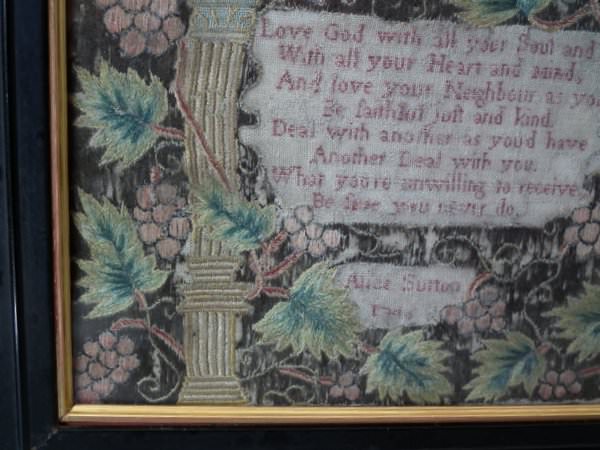 Love God with all your Soul and
With all your Heart and mind,
And love your Neighbour as you
Be faithful just and kind.
Deal with another as you'd have
Another Deal with you.
What you're unwilling to receive
Be sure you never do.
Alice Burton